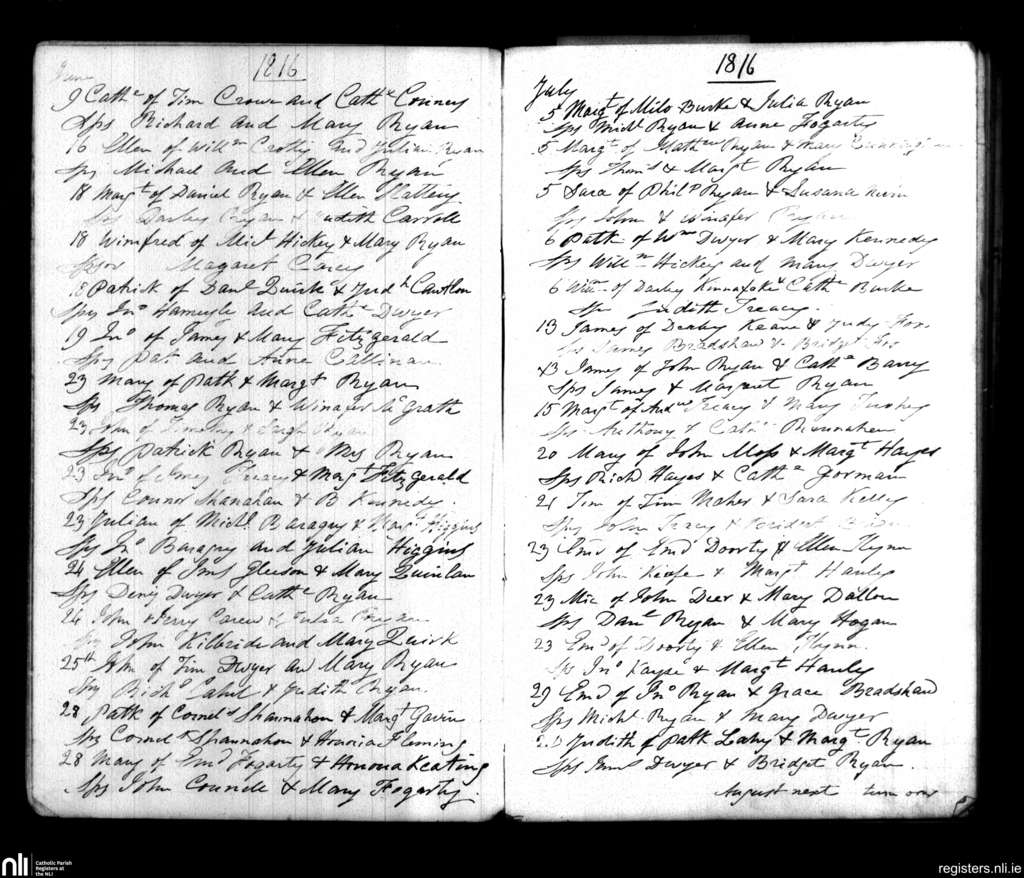 1816
June
9 Cathe of Tim Crowe and Cathe Conners
Sps Richard and Mary Ryan
16 Ellen of Willm and Julian Ryan
Sps Michael and Ellen Ryan
18 Margt of Daniel Ryan & Ellen
Sps Darley Ryan & Judith Carroll
18 Winifred of Micl Hickey & Mary Ryan
Spsor Magaret Carey
18 Patrick of Danl Quirke & Judh
Sps Jno and Cathe Dwyer
19 Jno of James & Mary Fitzgerald
Sps Pat and Anne Callinan
23 Mary of Patk & Margt Ryan
Sps Thomas Ryan & Winafer McGrath
23 of Timothy & Ryan
Sps Patrick Ryan & Mrs Ryan
23 Jno of James Treacy & Margt Fitzgerald
Sps Connor Shanahan & B Kennedy
23 Julian of Michl Baragry & Margt Higgins
Sps Jno Baragry and Julian Higgins
24 Ellen of Jams Gleeson & Mary Quinlan
Sps Denis Dwyer & Cathe Ryan
24 John of Jerry Carew & Julia Ryan
Sps John Kilbride and Mary Quirk
25th of Tim Dwyer and Mary Ryan
Sps Richd Cahil & Judith Ryan
28 Patk of Cornels Shannahon & Margt Gavin
Sps Cornels Shannahon & Honoria Fleming
28 Mary of Emd Fogarty & Honora Keating
Sps John Councle & Mary Fogarty
1816
July
5 Margt of Milo Burke & Julia Ryan
Sps Michl Ryan & Anne Fogarty
5 Margt of Mathew Ryan & Mary
Sps Thoms & Margt Ryan
5 Sara of Philp Ryan & Susana
Sps John & Winafer Ryan
6 Patk of Wm Dwyer & Mary Kennedy
Sps Willm Hickey and Mary Dwyer
6 Willm of Darley & Cathe Burke
Sps Judith Treacy
13 James of Darby Keane & Judy Fox
Sps James Bradshaw & Bridget Fox
13 James of John Ryan & Cathe Barry
Sps James & Margret Ryan
15 Margt of Andw Treacy & Mary
Sps Anthony & Cathe
20 Mary of John Moss & Margt Hayes
Sps Richd Hayes & Cathe Gorman
21 Tim of Tim Maher & Sara Kelly
Sps John & Bridget
23 Emd of Emd Doorty & Ellen Flynn
Sps John Keefe & Margt Hanly
23 Mic of John Deer & Mary Dallon
Sps Danl Ryan & Mary Hogan
23 Emd of Doorty & Ellen Flynn
Sps Jno & Margt Hanly
29 Emd of Jno Ryan & Grace Bradshaw
Sps Michl Ryan & Mary Dwyer
Judith of Patk Lahy & Margt Ryan
Sps Jams Dwyer & Bridget Ryan
August next turn over
nli Catholic Parish
Registers at
the NLI
registers.nli.ie